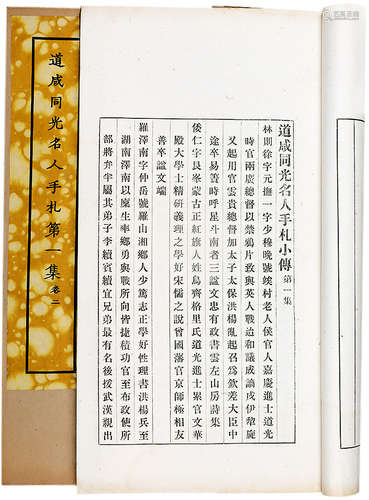 道咸同光名人手札第一集 卷二
道咸同光名人手札小傳 第一集
林則徐字元撫一字少穆晚號竢村老人侯官人嘉慶進士道光
時官兩廣總督以禁鴉片致與英人戰迫和議成謫戍伊犂旋
又起用官雲貴總督加太子太保洪楊亂起召為欽差大臣中
途卒易簀時呼星斗南者三諡文忠有政書雲左山房詩集
倭仁字艮峯蒙古正紅旗人姓烏齊格里氏道光進士累官文華
殿大學士精研義理之學好宋儒之說曾國藩官京師極相友
善卒諡文端
羅澤南字仲岳號羅山湘鄉人少篤志正學好性理書洪楊兵至
湖南澤南以廩生率鄉勇與戰所向皆捷積功官至布政使所
部將弁半屬其弟子李續賓續宜兄弟最有名後援武漢親出